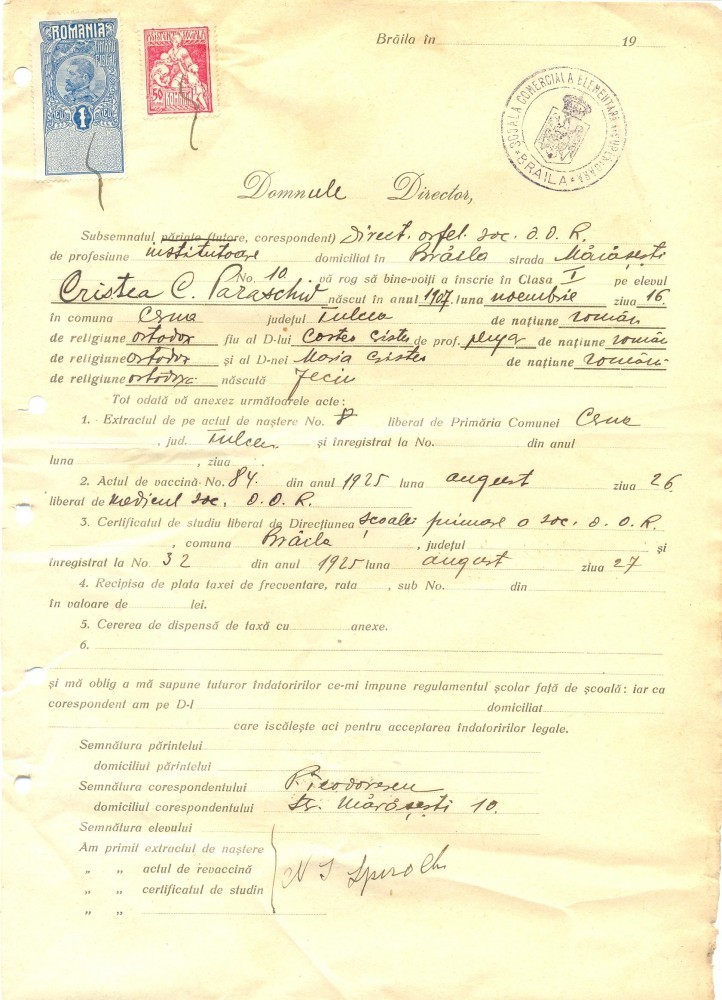 ROMANIA
TIMBRU FISCAL
1 LEU
ASISTENȚA SOCIALA
50
ROMANIA
Brăila în 19
SCOALA COMERCIALA ELEMENTARA SUPERIOARA
BRAILA
Domnule Director,
Subsemnatul părinte (tutore, corespondent) Direct. orfel. soc. O. O. R.
de profesiune institutoare domiciliat în Brăila strada Mărăsesti
No. 10 vă rog să bine-voiți a înscrie în Clasa I pe elevul
Cristea C. Paraschiv născut în anul 1907. luna noembrie ziua 16.
în comuna Cerna județul Tulcea de națiune român
de religiune ortodox fiu al D-lui Costea Cistea de prof. de națiune român
de religiune ortodox și al D-nei Maria Cistea de națiune română
de religiune ortodoxă născută Jeciu
Tot odată vă anexez următoarele acte :
1. Extractul de pe actul de naștere No. 8 liberat de Primăria Comunei Cerna
, jud. Tulcea și înregistrat la No. din anul
luna , ziua
2. Actul de vaccină No. 84. din anul 1925 luna august ziua 26.
liberat de medicul soc. O. O. R.
3. Certificatul de studiu liberat de Direcțiunea școalei primare a soc. O. O. R.
, comuna Brăila , județul și
înregistrat la No. 32 din anul 1925 luna august ziua 27
4. Recipisa de plata taxei de frecventare, rata , sub No. din
în valoare de lei.
5. Cererea de dispensă de taxă cu anexe.
6.
și mă oblig a mă supune tuturor îndatoririlor ce-mi impune regulamentul școlar față de școală : iar ca
corespondent am pe D-l domiciliat
care iscălește aci pentru acceptarea îndatoririlor legale.
Semnătura părintelui
domiciliul părintelui
Semnătura corespondentului P. Teodorescu
domiciliul corespondentului Str. Mărășești 10.
Semnătura elevului
Am primit extractul de naștere
„ „ actul de revaccină
„ „ certificatul de studiu
„ „